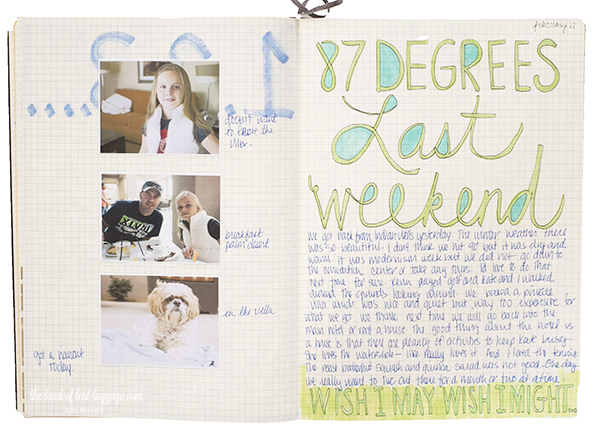 1. 2. 3. ....
doesn't want
to leave the
villa.
breakfast
palm desert
in the villa
got a haircut
today.
the land of lost luggage.com
february 17
87 DEGREES
Last
weekend
We got back from indian wells yesterday. The winter weather there
was so beautiful. I don't think we hit 90 but it was dry and
warm. It was modernism week but we did not go down to
the convention center or take any tours. I'd love to do that
next time for sure. played golf and kate and I walked
around the grounds looking around. We rented a private
villa which was nice and quiet but way too expensive for
what we got. We think next time we will go back into the
main hotel or rent a house. The good thing about the hotel vs
a house is that there are plenty of activities to keep kate busy.
She loves the waterslide - like really loves it. And I loved the
The roast butternut squash and quinoa salad was not good. One day
we really want to live out there for a month or two at a time.
WISH I MAY WISH I MIGHT...